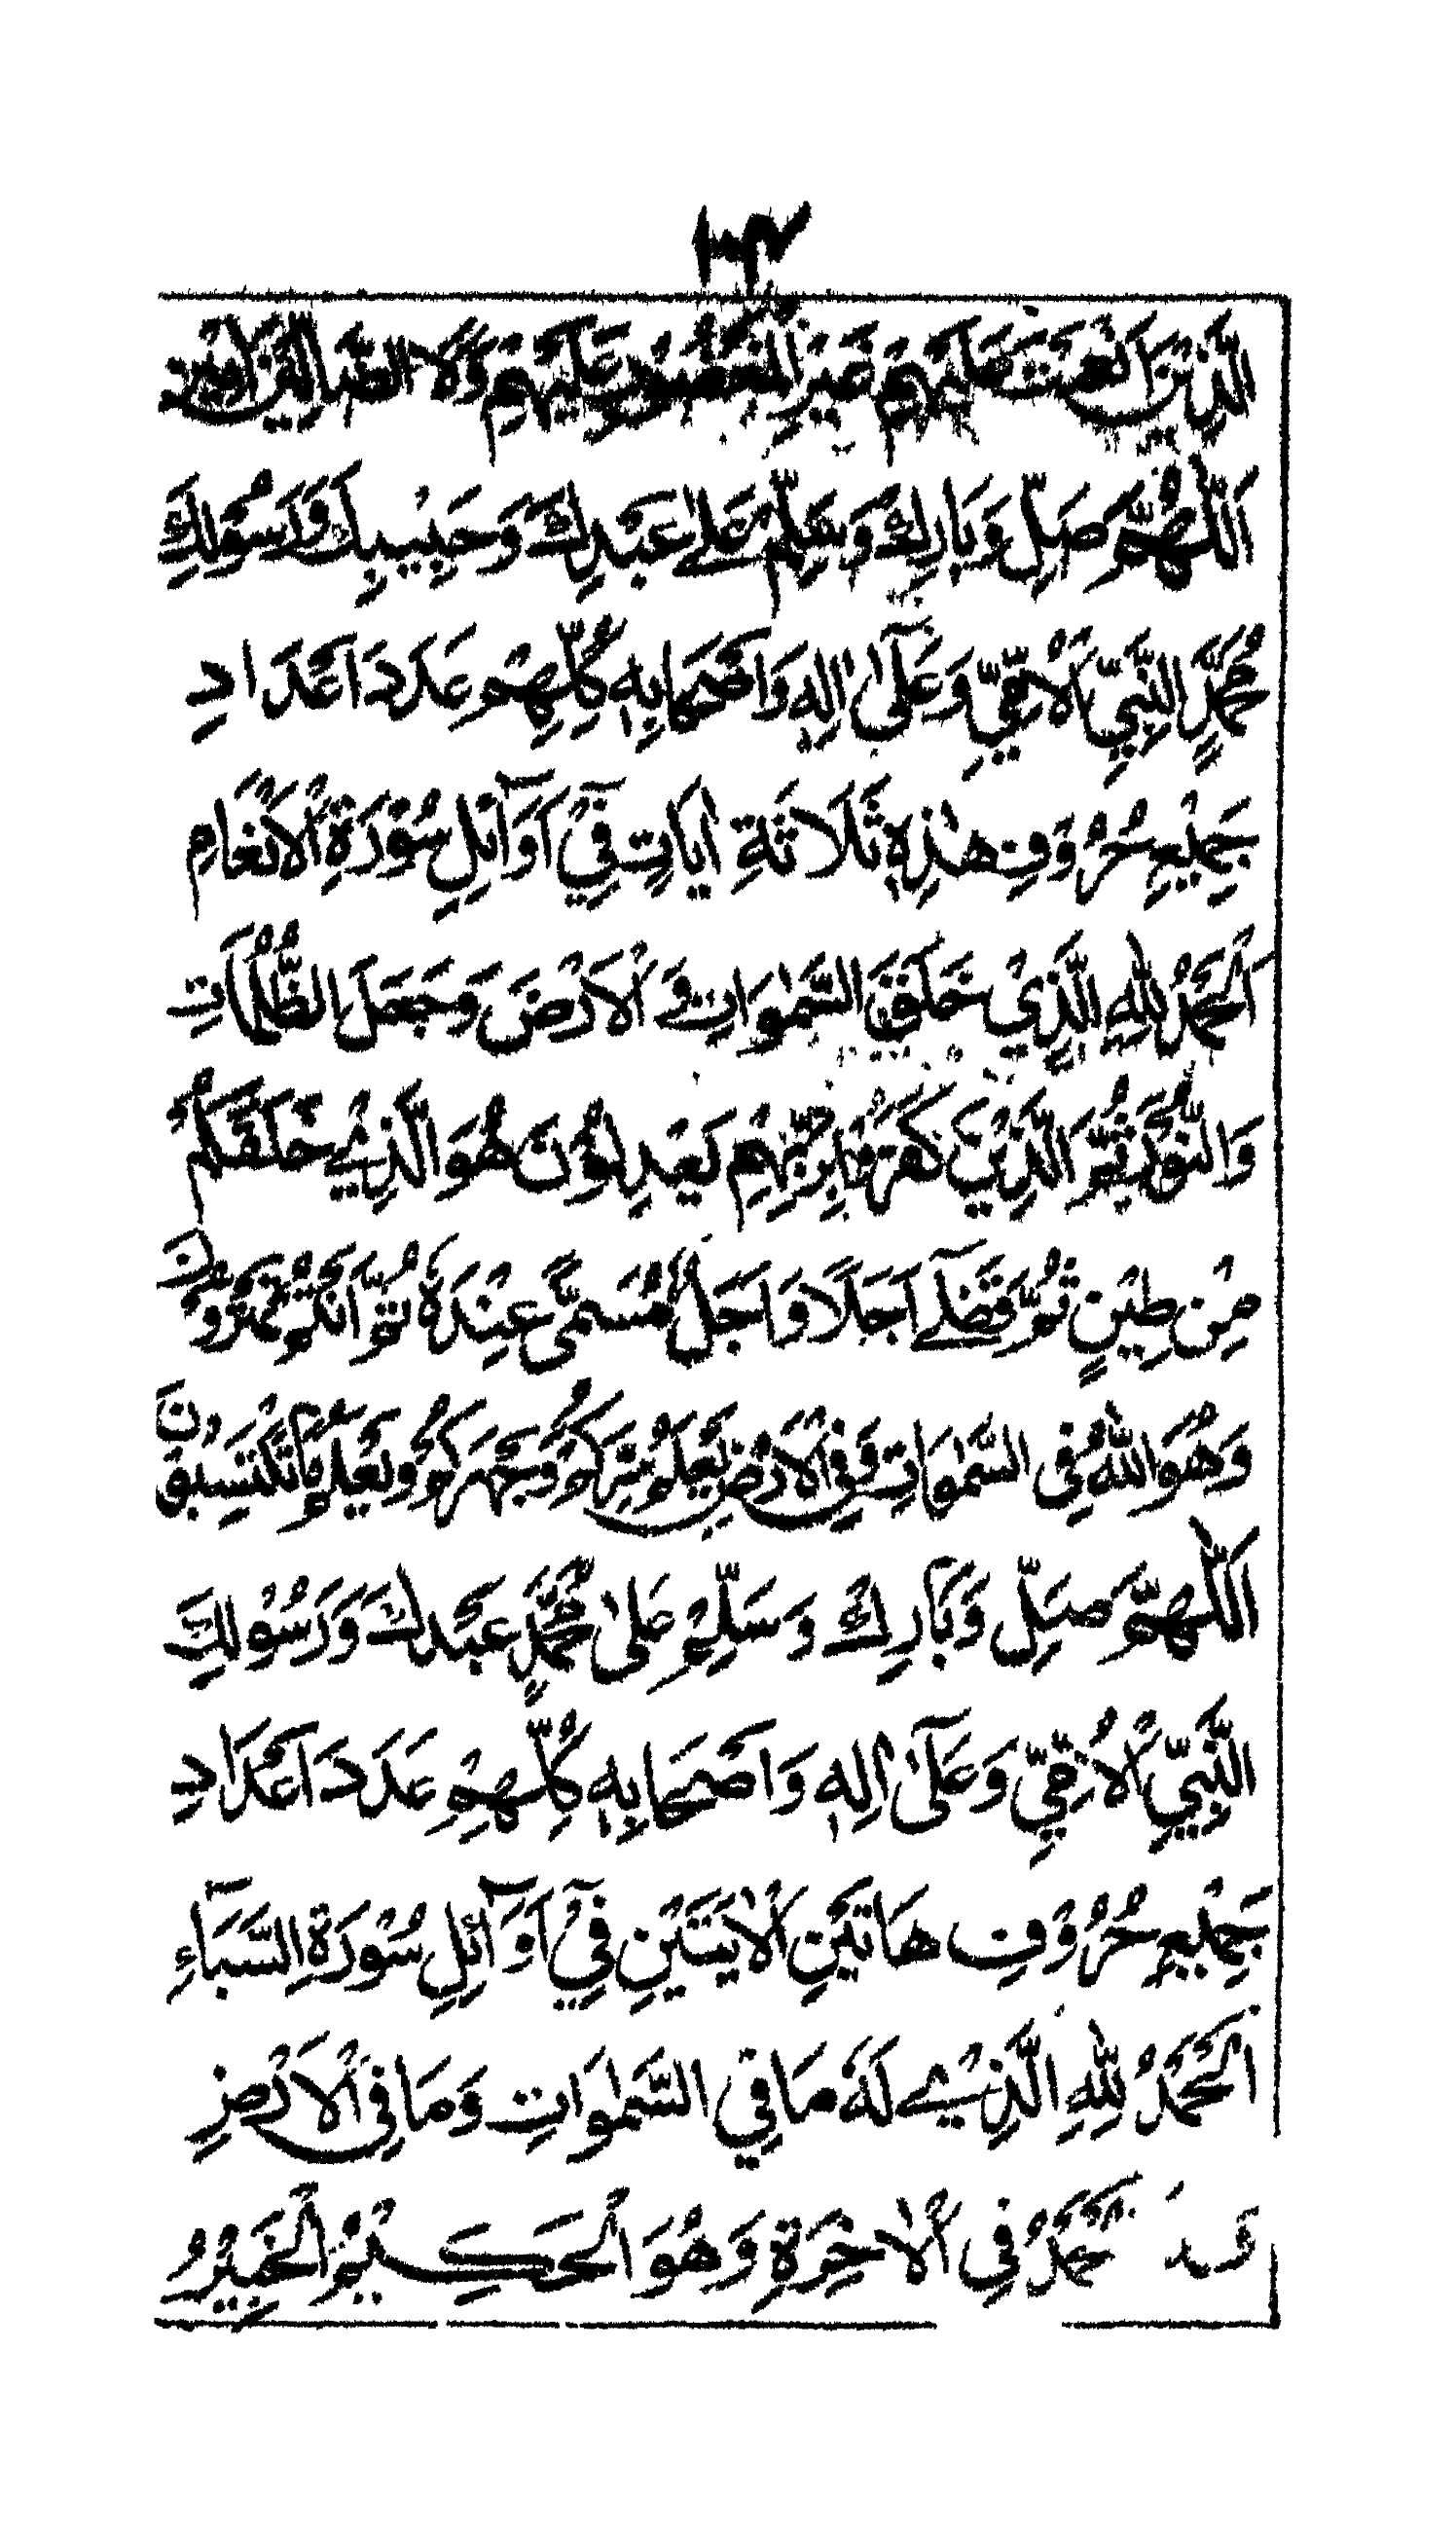 ١٠٣
الَّذِيْنَ اَنْعَمْتَ عَلَيْهِمْ غَيْرِ الْمَغْضُوْبِ عَلَيْهِمْ وَلَا الضَّالِّيْنَ اٰمِيْن
اَللّٰهُمَّ صَلِّ وَبَارِكْ وَسَلِّمْ عَلٰى عَبْدِكَ وَحَبِيْبِكَ وَرَسُوْلِكَ
مُحَمَّدٍ النَّبِيِّ الْاُمِّيِّ وَعَلٰٓى اٰلِهٖ وَاَصْحَابِهٖ كُلِّهِمْ عَدَدَ اَعْدَادِ
جَمِيْعِ حُرُوْفِ هٰذِهٖ ثَلَاثَةِ اٰيَاتٍ فِيْٓ اَوَآئِلِ سُوْرَةِ الْاَنْعَامِ
اَلْحَمْدُ لِلّٰهِ الَّذِيْ خَلَقَ السَّمٰوَاتِ وَ الْاَرْضَ وَجَعَلَ الظُّلُمَاتِ
وَالنُّوْرَ ثُمَّ الَّذِيْنَ كَفَرُوْا بِرَبِّهِمْ يَعْدِلُوْنَ هُوَ الَّذِيْ خَلَقَكُمْ
مِنْ طِيْنٍ ثُمَّ قَضٰٓى اَجَلًا وَاَجَلٌ مُسَمًّى عِنْدَهٗ ثُمَّ اَنْتُمْ تَمْتَرُوْنَ
وَهُوَ اللّٰهُ فِى السَّمٰوَاتِ وَفِى الْاَرْضِ يَعْلَمُ سِرَّكُمْ وَجَهْرَكُمْ وَيَعْلَمُ مَا تَكْسِبُوْنَ
اَللّٰهُمَّ صَلِّ وَبَارِكْ وَسَلِّمْ عَلٰى مُحَمَّدٍ عَبْدِكَ وَرَسُوْلِكَ
النَّبِيِّ الْاُمِّيِّ وَعَلٰٓى اٰلِهٖ وَاَصْحَابِهٖ كُلِّهِمْ عَدَدَ اَعْدَادِ
جَمِيْعِ حُرُوْفِ هَاتَيْنِ الْاٰيَتَيْنِ فِيْٓ اَوَآئِلِ سُوْرَةِ السَّبَآءِ
اَلْحَمْدُ لِلّٰهِ الَّذِيْ لَهٗ مَا فِي السَّمٰوَاتِ وَمَا فِى الْاَرْضِ
وَلَهُ الْحَمْدُ فِى الْاٰخِرَةِ وَهُوَ الْحَكِيْمُ الْخَبِيْرُ